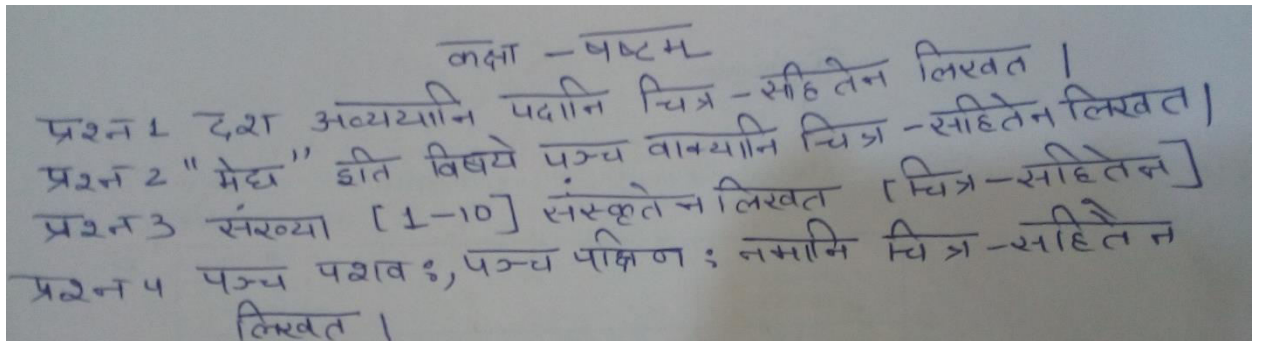 कक्षा - षष्टम
प्रश्न 1 दश अव्ययानि पदानि चित्र - सहितेन लिखत ।
प्रश्न 2 "मेघ" इति विषये पञ्च वाक्यानि चित्र - सहितेन लिखत ।
प्रश्न 3 संख्या [1-10] संस्कृतेन लिखत [चित्र - सहितेन]
प्रश्न 4 पञ्च पशवः, पञ्च पक्षिणः नमानि चित्र - सहितेन
लिखत ।